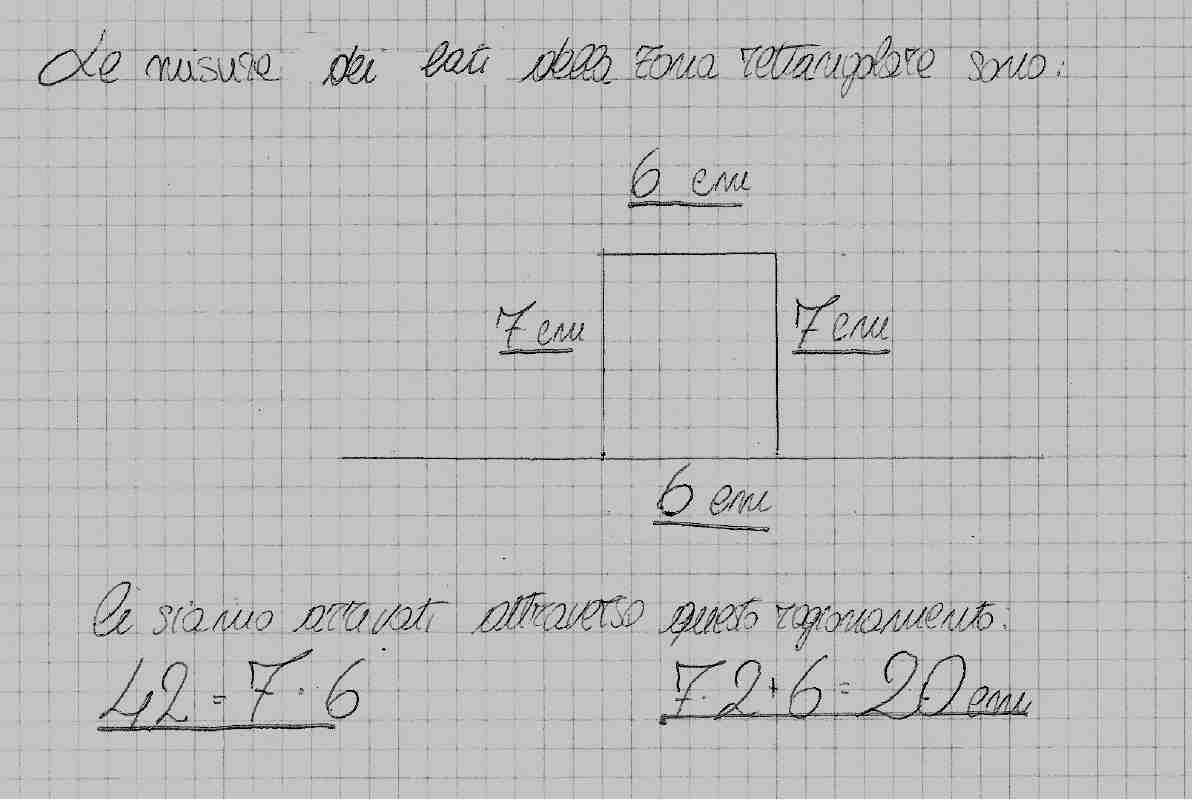 Le misure dei lati della zona rettangolare sono:
6 cm
7 cm 7 cm
6 cm
Ci siamo arrivati attraverso questo ragionamento:
42 = 7 · 6 7·2+6 = 20 cm